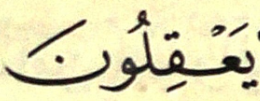 يَعْقِلُونَ